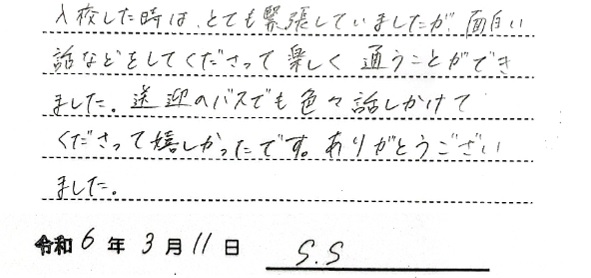 入校した時は、とても緊張していましたが、面白い
話などをしてくださって楽しく通うことができ
ました。送迎のバスでも色々話しかけて
くださって嬉しかったです。ありがとうござい
ました。
令和6年3月11日 S.S